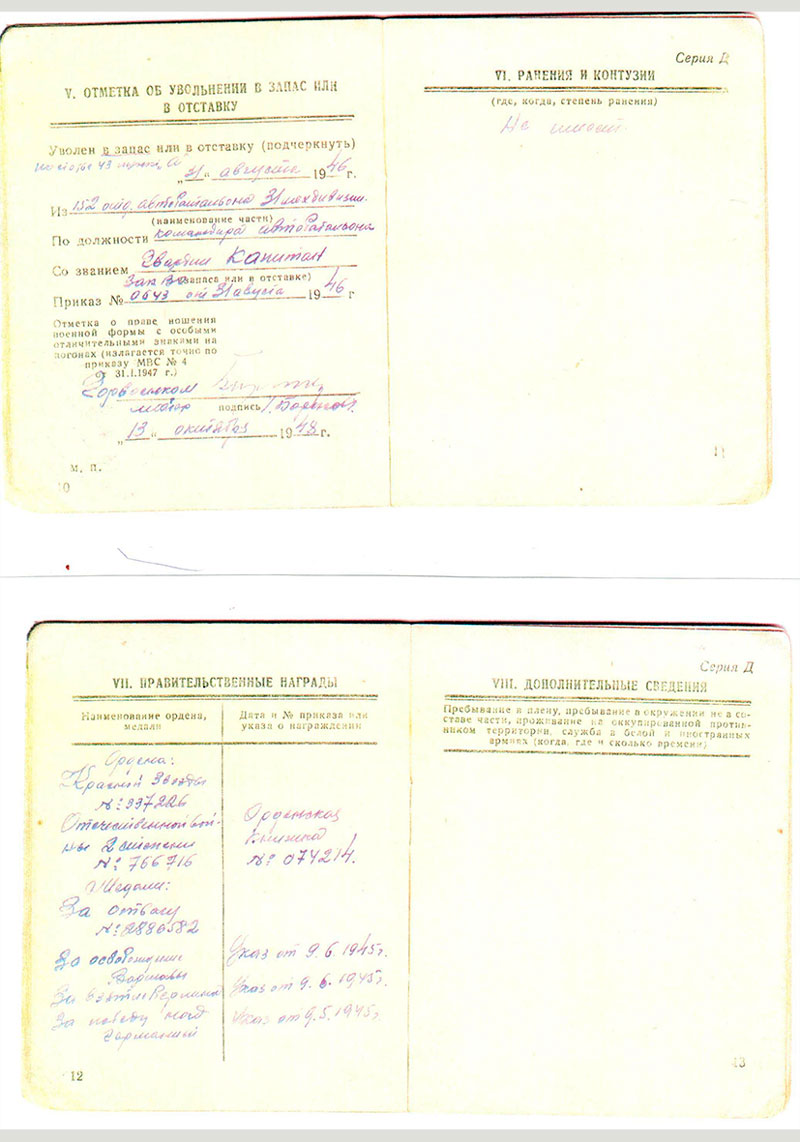 V. ОТМЕТКА ОБ УВОЛЬНЕНИИ В ЗАПАС ИЛИ
В ОТСТАВКУ
Уволен в запас или в отставку (подчеркнуть)
по статье 43
„31“ августа 1946 г.
Из 152 отд. автобатальона
(наименование части)
По должности командира автобатальона
Со званием Гвардии Капитан
запаса или в отставке)
Приказ № 0643 от 31 августа 1946 г
Отметка о праве ношения
военной формы с особыми
отличительными знаками на
погонах (излагается точно по
приказу МВС № 4
31.1.1947 г.)
Горвоенком
майор подпись
„13“ октября 1948 г.
м. п.
10
Серия Д
VI. РАНЕНИЯ И КОНТУЗИИ
(где, когда, степень ранения)
Не имеет.
11
VII. ПРАВИТЕЛЬСТВЕННЫЕ НАГРАДЫ
Наименование ордена,
медали
Дата и № приказа или
указа о награждении
Ордена:
Красной Звезды
№: 337226
Отечественной вой-
ны 2 степени
№: 766716
Орденская
книжка
№: 074214.
Медали:
За отвагу
№: 2880582
За освобождение
Варшавы
Указ от 9.6.1945г.
За взятие Берлина
Указ от 9.6.1945г.
За победу над
Германией
Указ от 9.5.1945г
12
Серия Д
VIII. ДОПОЛНИТЕЛЬНЫЕ СВЕДЕНИЯ
Пребывание в плену, пребывание в окружении не в со-
ставе части, проживание на оккупированной против-
ником территории, служба в белой и иностранных
армиях (когда, где и сколько времени)
13